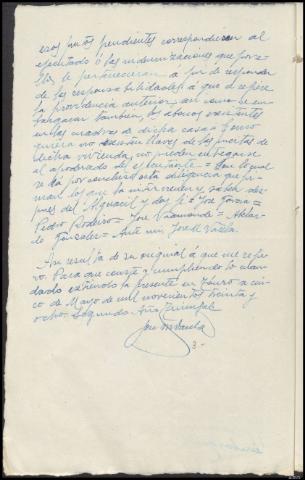 esos frutos pendientes correspondieran al
ejecutado ó las indemnizaciones que por
ellos le pertenecieran a fin de responder
de las responsabilidades á que se refiere
la providencia anterior, así como se em-
bargaran tambien los abonos existentes
en las cuadras de dicha casa = Como
quiera no existen llaves de las puertas de
dicha vivienda, no pueden entregarse
al apoderado del ejecutante = Con lo cual
se da por concluida esta diligencia que fir-
man los que la intervienen y saben des-
pues del Alguacil y doy fé = José García =
Pedro Rodeiro = José Vaamonde = Abelar-
do González = Ante mi, José M. Varela.
Asi resulta de su original á que me refie-
ro. Para que conste y cumpliendo lo man-
dado extiendo la presente en Touro a cin-
co de Mayo de mil novecientos treinta y
ocho. Segundo Año Triunfal.
José M. Varela
3-